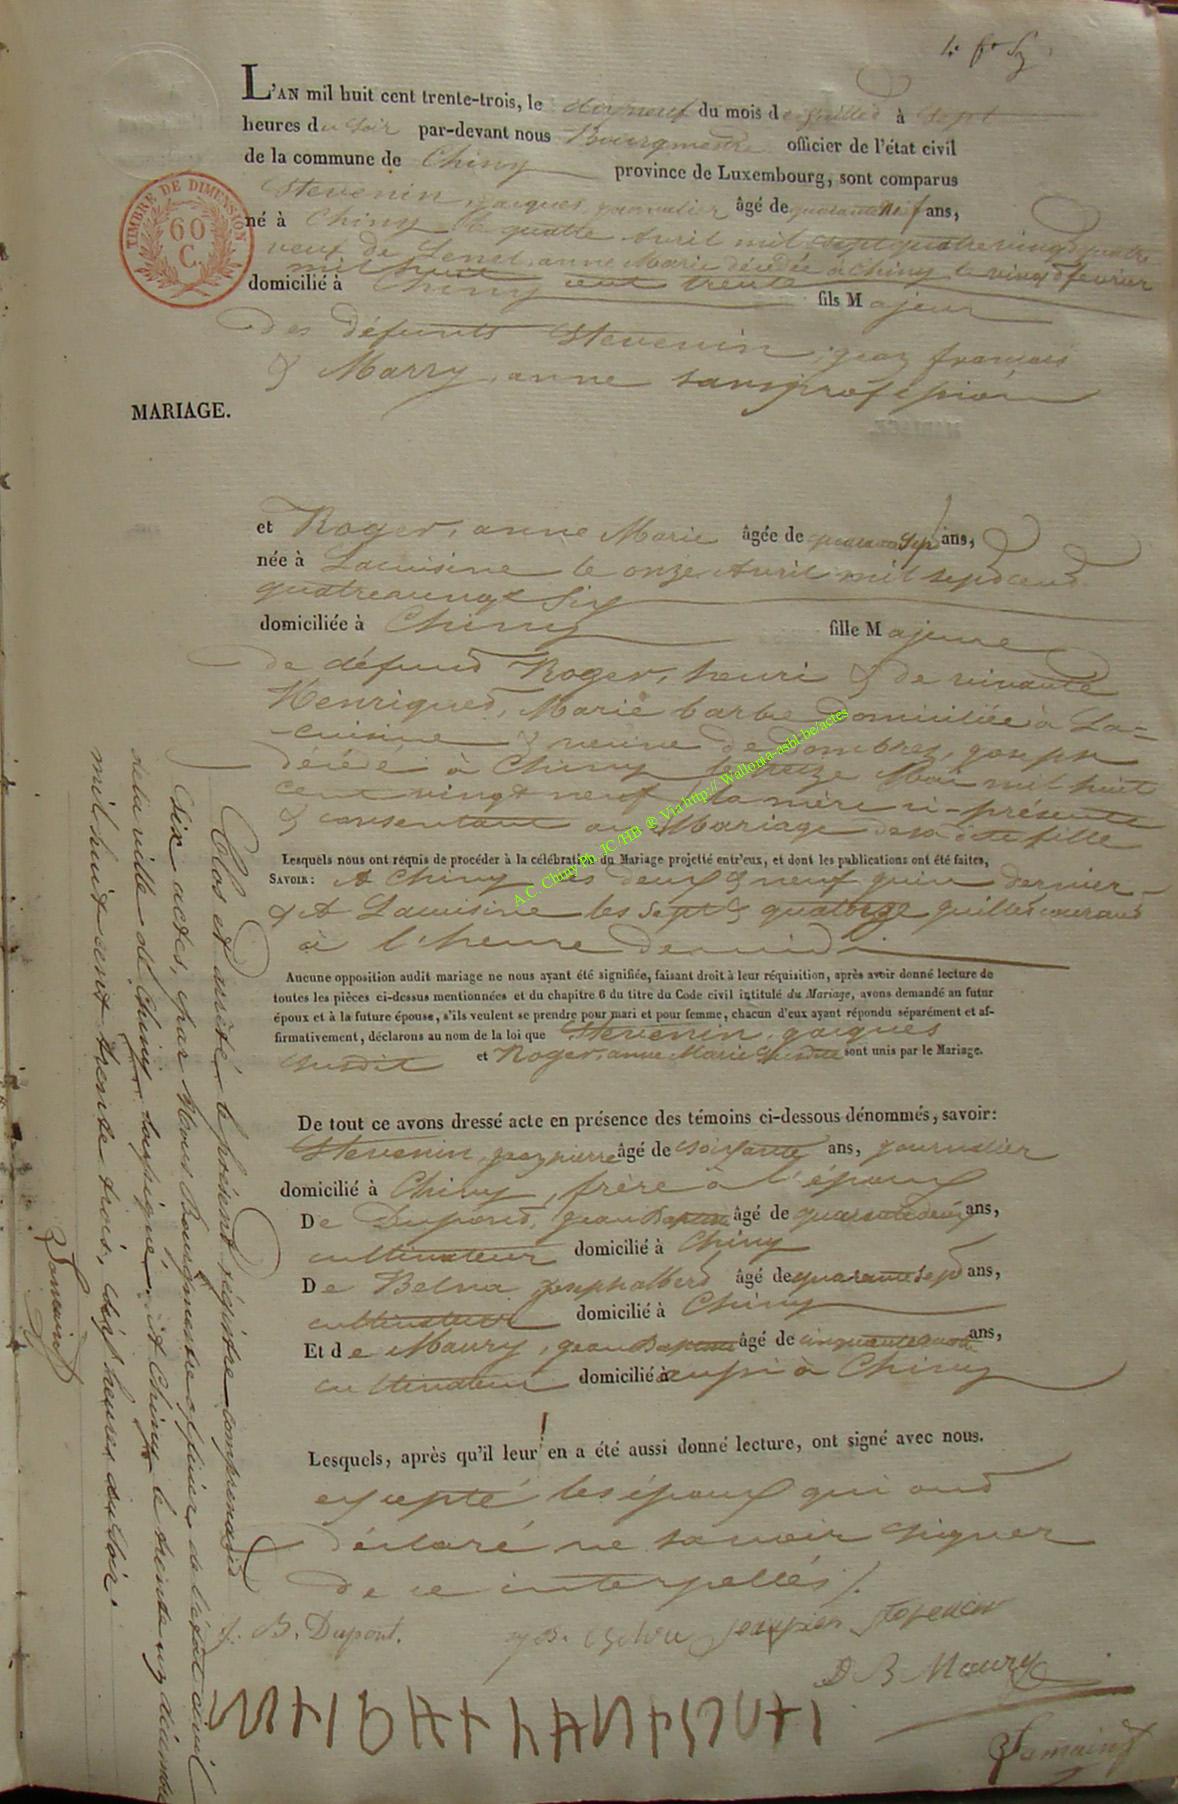 1. fo Sz
L'AN mil huit cent trente-trois, le dixneuf du mois de juillet à sept
heures du soir par-devant nous Bourgmestre officier de l'état civil
de la commune de Chiny province de Luxembourg, sont comparus
Stevenin, jacques journalier âgé de quarante neuf ans,
né à Chiny le quatre Avril mil sept quatrevingt quatre
veuf de Lenel, anne Marie décédée à Chiny le vingt fevrier
mil huit cent trente
domicilié à Chiny fils Majeur
des défunts Stevenin, jean françois
& Marry, anne sans profession
MARIAGE.
et Roger, anne Marie âgée de quarante sept ans,
née à Lacuisine le onze Avril mil sept cent
quatrevingt six
domiciliée à Chiny fille Majeure
de défunt Roger, henri & de vivante
Henriquet, Marie barbe domiciliée à La=
cuisine & veuve de Dombret, joseph
décédé à Chiny le treize Mai mil huit
cent vingt neuf la mère ci-présente
& consentant au Mariage de sa dite fille
Lesquels nous ont requis de procéder à la célébration du Mariage projetté entr'eux, et dont les publications ont été faites,
SAVOIR: A Chiny les deux & neuf juin dernier
& A Lacuisine les sept & quatorze juillet courant
à l'heure de midi
Aucune opposition audit mariage ne nous ayant été signifiée, faisant droit à leur réquisition, après avoir donné lecture de
toutes les pièces ci-dessus mentionnées et du chapitre 6 du titre du Code civil intitulé du Mariage, avons demandé au futur
époux et à la future épouse, s'ils veulent se prendre pour mari et pour femme, chacun d'eux ayant répondu séparément et af-
firmativement, déclarons au nom de la loi que Stevenin, jacques
susdit et Roger, anne Marie susdite sont unis par le Mariage.
De tout ce avons dressé acte en présence des témoins ci-dessous dénommés, savoir:
Stevenin, jean pierre âgé de soixante ans, journalier
domicilié à Chiny, frère à l'époux
De Dupont, jean Baptiste âgé de quarante deux ans,
cultivateur domicilié à Chiny
De Belva joseph albert âgé de quarante sept ans,
cultivateur domicilié à Chiny
Et de Maury, jean Baptiste âgé de cinquante ans,
cultivateur domicilié aussi à Chiny
Lesquels, après qu'il leur en a été aussi donné lecture, ont signé avec nous.
excepté les époux qui ont
déclaré ne savoir signer
de ce interpellés /.
j. B. Dupont. jean pier stevenin
D B Maury
Jamain
TIMBRE DE DIMENSION
60
C.
Clos et arrêté le présent régistre comprenant
six actes, par Nous Bourgmestre officier de l'état civil
de la ville de Chiny soussigné. A Chiny le trente un décembre
mil huit cent trente trois, six heures du soir.
Jamain
A.C. Chiny Ph. JC/HB ® Via http:// Wallonia-asbl.be/actes